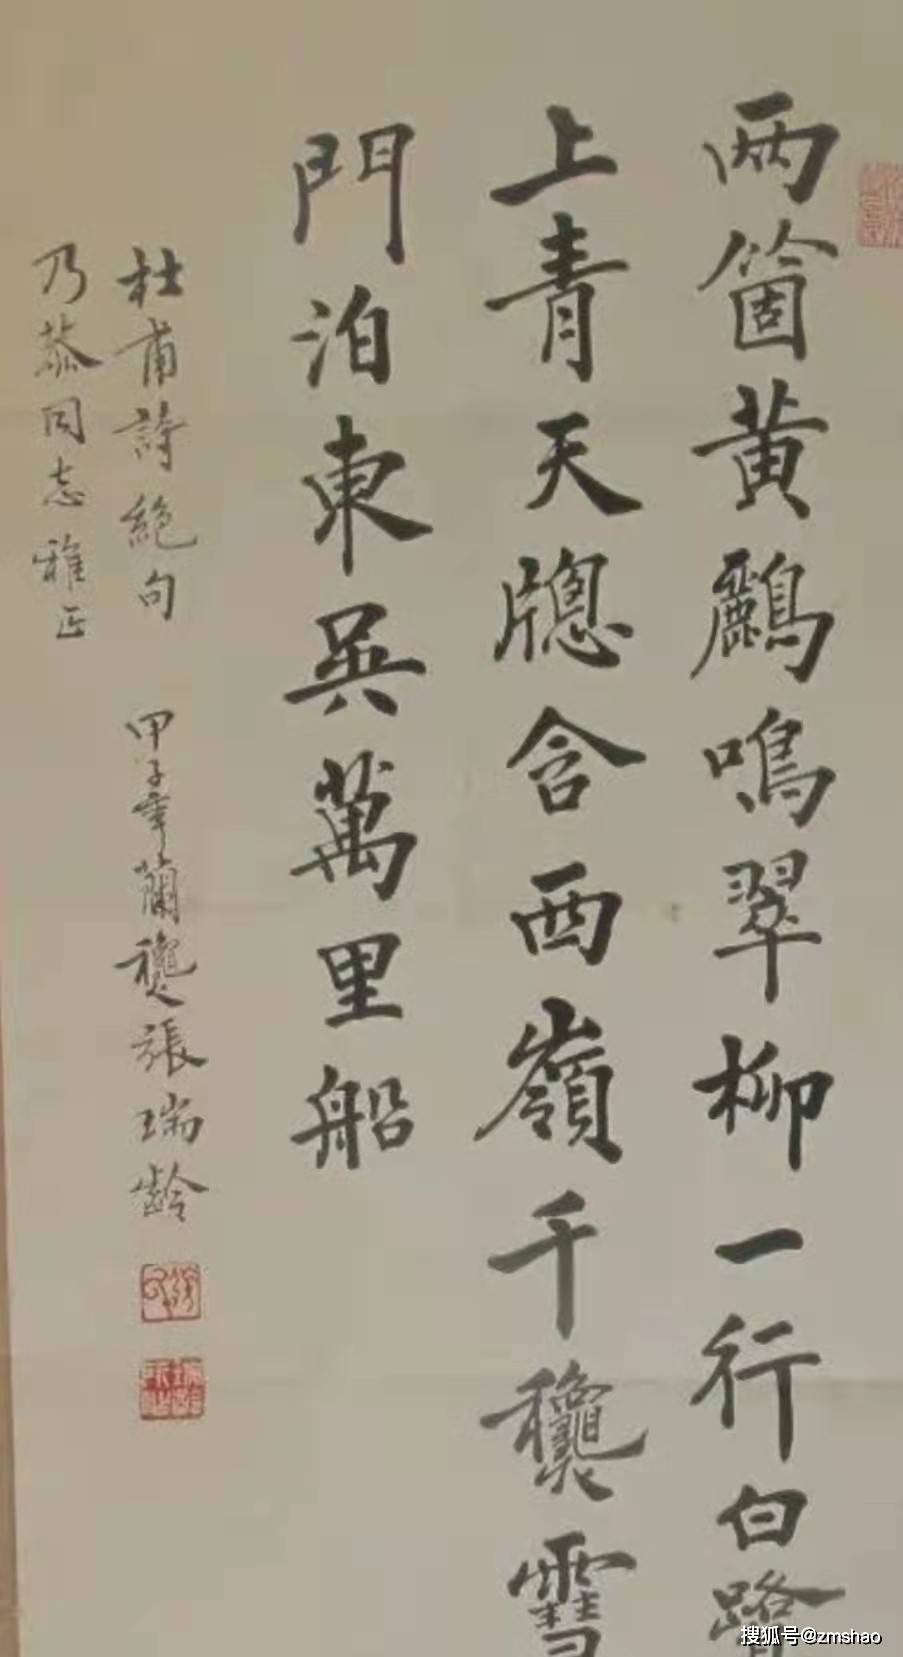 两箇黄鸝鳴翠柳一行白鷺
上青天牕含西嶺千龝雪
門泊東吳萬里船
杜甫詩絕句 甲子年蘭龝張瑞齡
乃恭同志雅正
搜狐号@zmshao